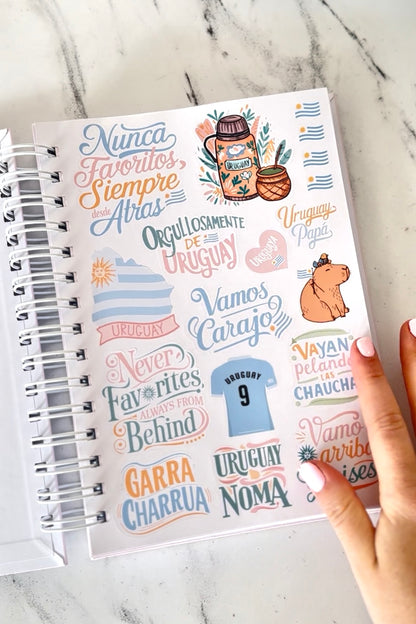 Nunca
Favoritos,
Siempre
desde
Atras
URUGUAY
ORGULLOSAMENTE
DE
URUGUAY
URUGUAY
Uruguay
Papá
URUGUAY
Vamos
Carajo
VAYAN
pelando
LAS
CHAUCHA
Never
Favorites,
ALWAYS FROM
Behind
URUGUAY
9
Vamo
arriba
GARRA
CHARRUA
URUGUAY
NOMA